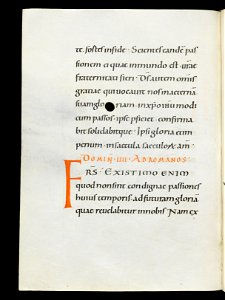 te. fortes in fide · Scientes eandē pas
sionem ei quae in mundo est · urāe
fraternitati fieri · D̄s autem omis
gratiae qui uocauit nos in aeternā
suam gloriam in xpō ihū modi
cum passos · ipse perficiet · confirma
bit solidabitque · Ipsi gloria et im
perium · in saecula saeculoȝ am
DOMIN · IIII · AD ROMANOS
FR̄S · EXISTIMO ENIM
quod non sint condignae passiones
huius temporis ad futuram gloriā
quae reuelabitur in nobis Nam ex